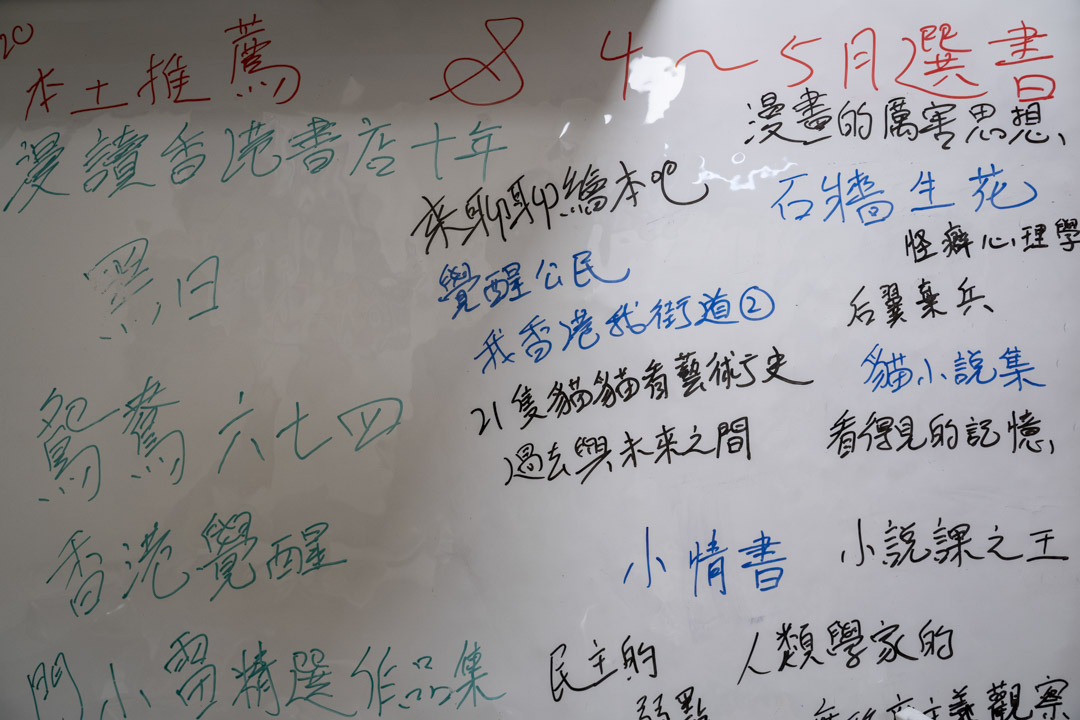 20
本土推薦 & 4~5月選書
漫讀香港書店十年
黑日
鴛鴦六七四
香港覺醒
門小雷精選作品集
來聊聊繪本吧
覺醒公民
我香港我街道②
21隻貓貓看藝術史
過去與未來之間
小情書
民主的
弱點
漫畫的厲害思想、
石牆生花
怪癖心理學
后翼棄兵
貓小說集
看得見的記憶、
小說課之王
人類學家的
無政府主義觀察